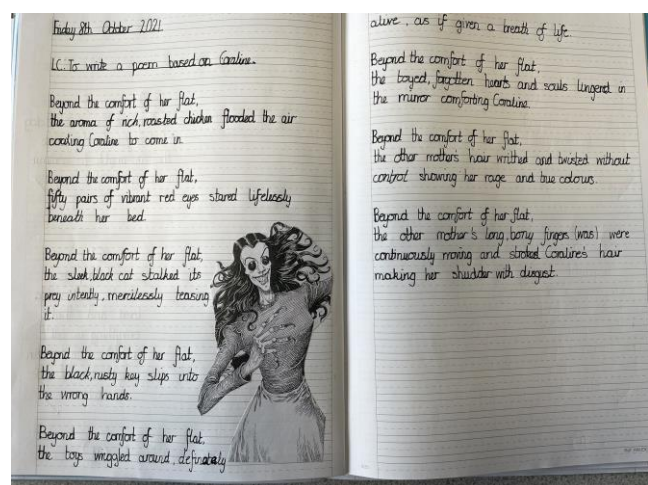 Friday 8th October 2021
LC: To write a poem based on Coraline.
Beyond the comfort of her flat,
the aroma of rich, roasted chicken flooded the air
coaxing Coraline to come in.
Beyond the comfort of her flat,
fifty pairs of vibrant red eyes stared lifelessly
beneath her bed.
Beyond the comfort of her flat,
the sleek, black cat stalked its
prey intently, mercilessly teasing
it.
Beyond the comfort of her flat,
the black, rusty key slips into
the wrong hands.
Beyond the comfort of her flat,
the toys wriggled around, definately
alive, as if given a breath of life.
Beyond the comfort of her flat,
the forgotten hearts and souls lingered in
the mirror comforting Coraline.
Beyond the comfort of her flat,
the other mother's hair writhed and twisted without
control showing her rage and true colours.
Beyond the comfort of her flat,
the other mother's long, bony fingers (was) were
continuously moving and stroked Coraline's hair
making her shudder with disgust.